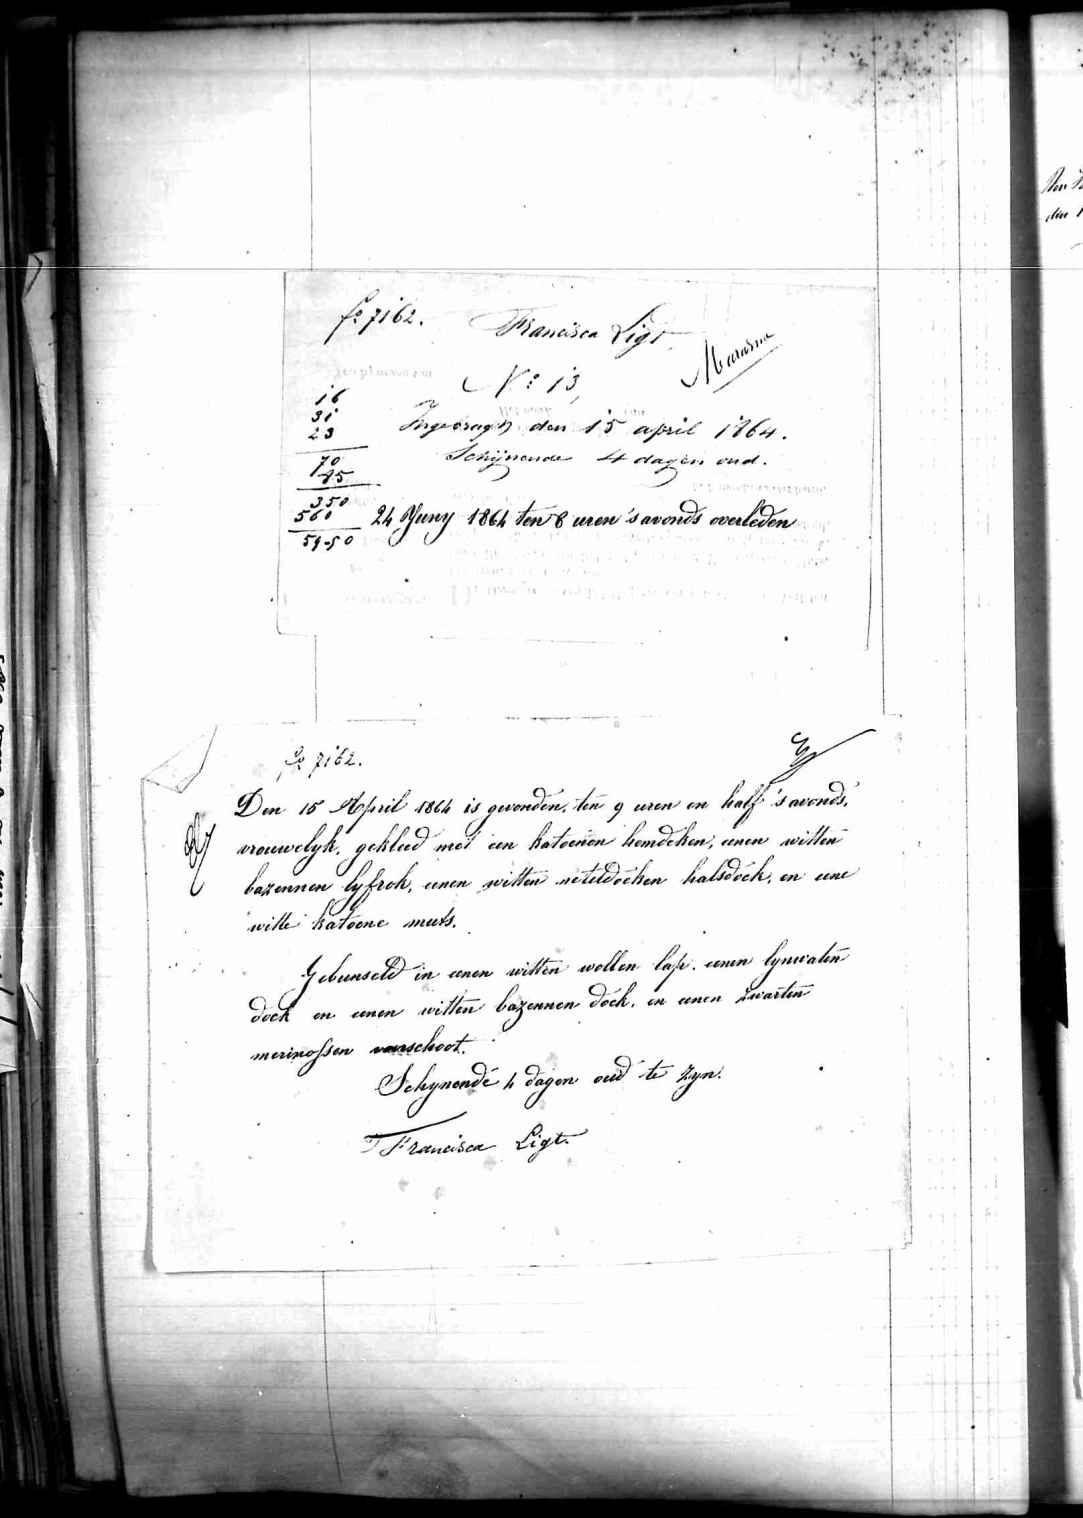 fo 7162.
Francisca Ligt
Marasme
No 13,
16
31
23
70
85
350
560
59-50
Ingebragt den 15 april 1864.
Schijnende 4 dagen oud.
24 Juny 1864 ten 8 uren 's avonds overleden
fo 7162.
Den 15 April 1864 is gevonden, ten 9 uren en half 's avonds,
vrouwelyk, gekleed met een katoenen hemdeken, eenen witten
bazennen lyfrok, eenen witten neteldoeken halsdoek, en eene
witte katoene muts.
Gebunseld in eenen witten wollen lap, eenen lynwaten
doek en eenen witten bazennen doek, en eenen zwarten
merinossen voorschoot.
Schynende 4 dagen oud te zyn.
Francisca Ligt.